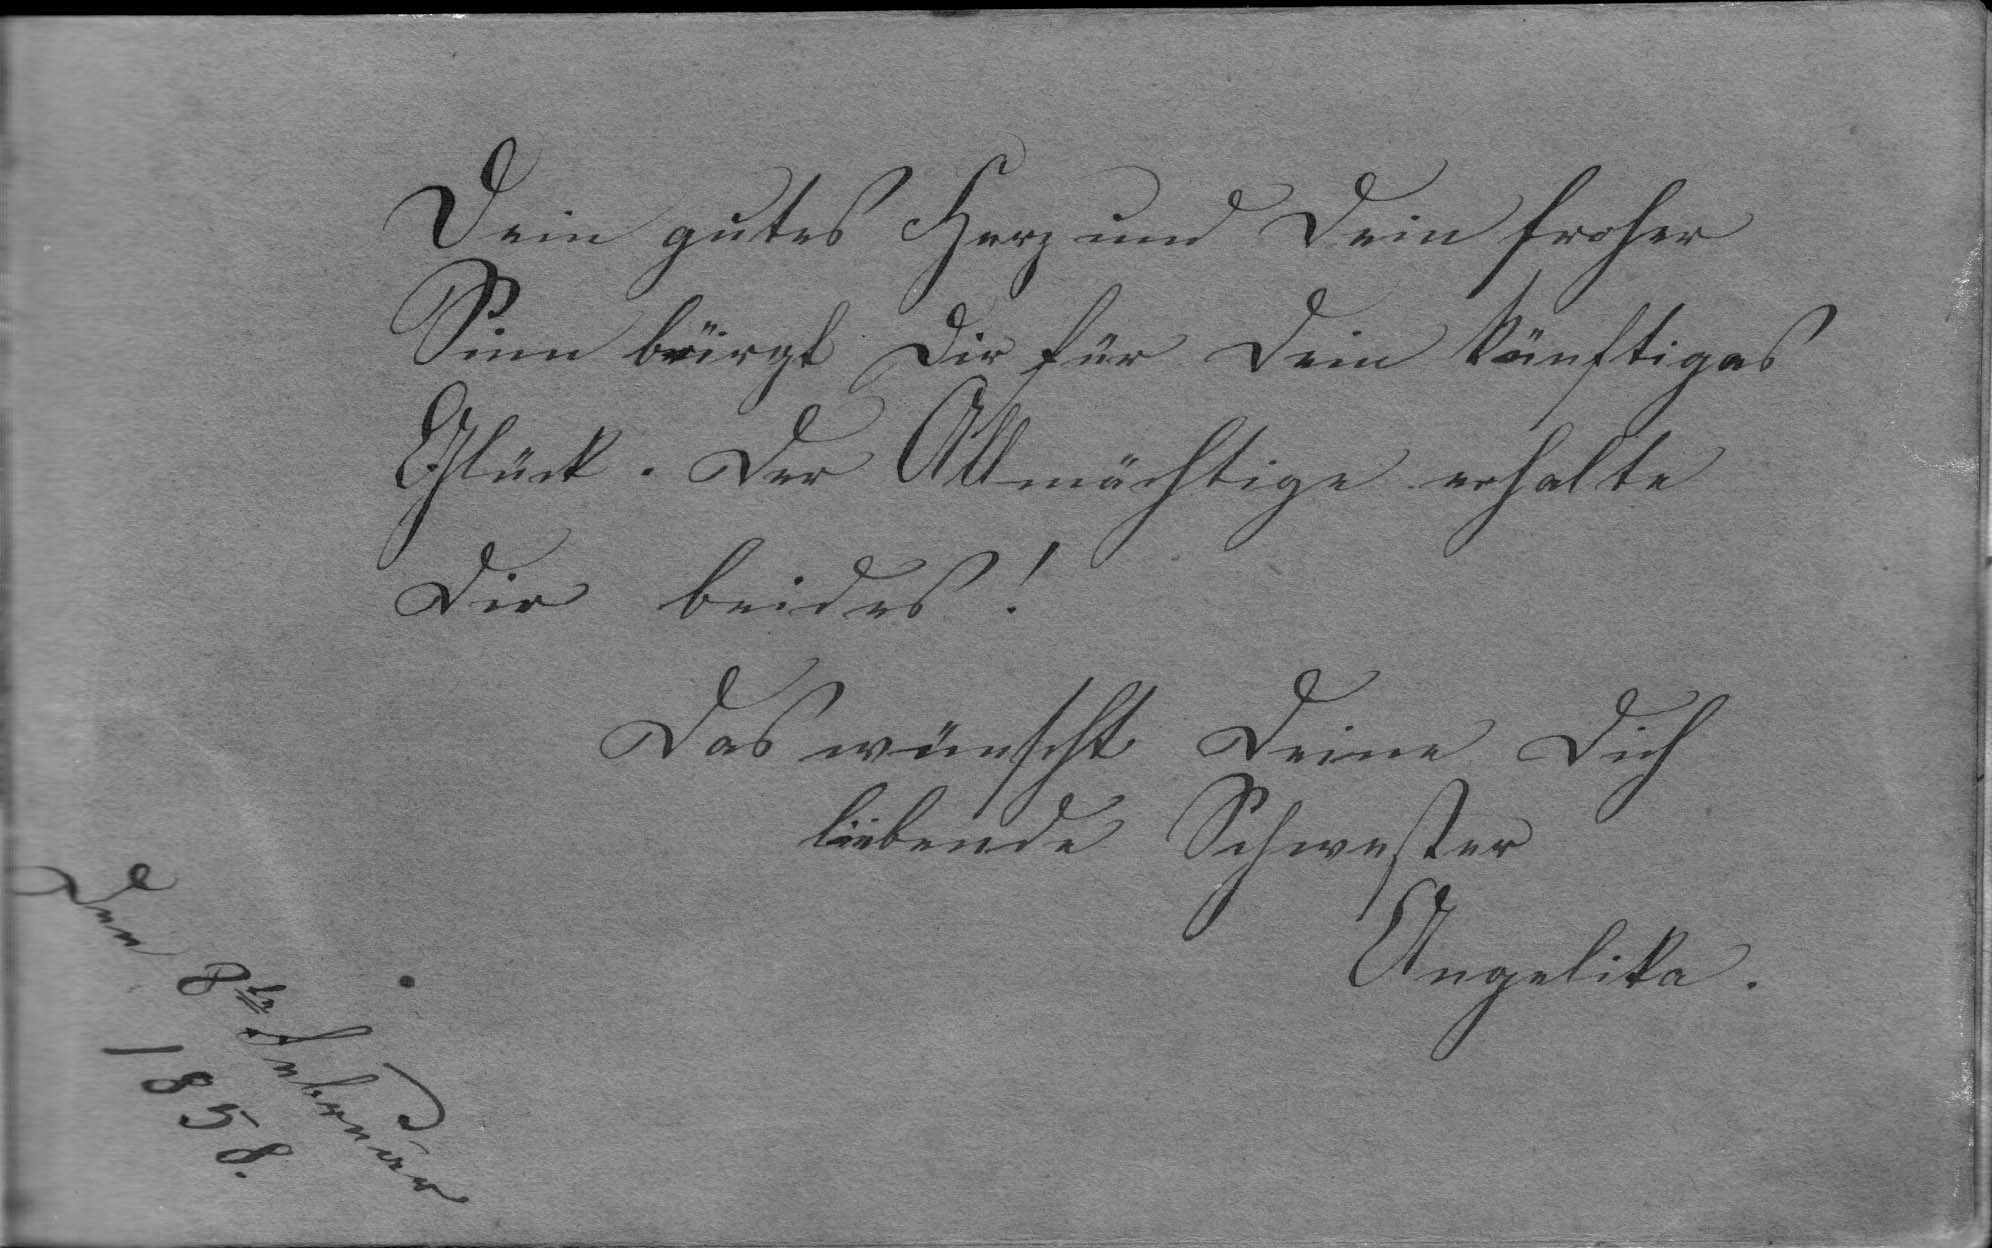 Dein gutes Herz und Dein froher
Sinn bürgt Dir für Dein künftiges
Glück. Der Allmächtige erhalte
Dir beides!
Das wünscht Deine Dich
liebende Schwester
Angelika.
Den 8te Februar
1858.